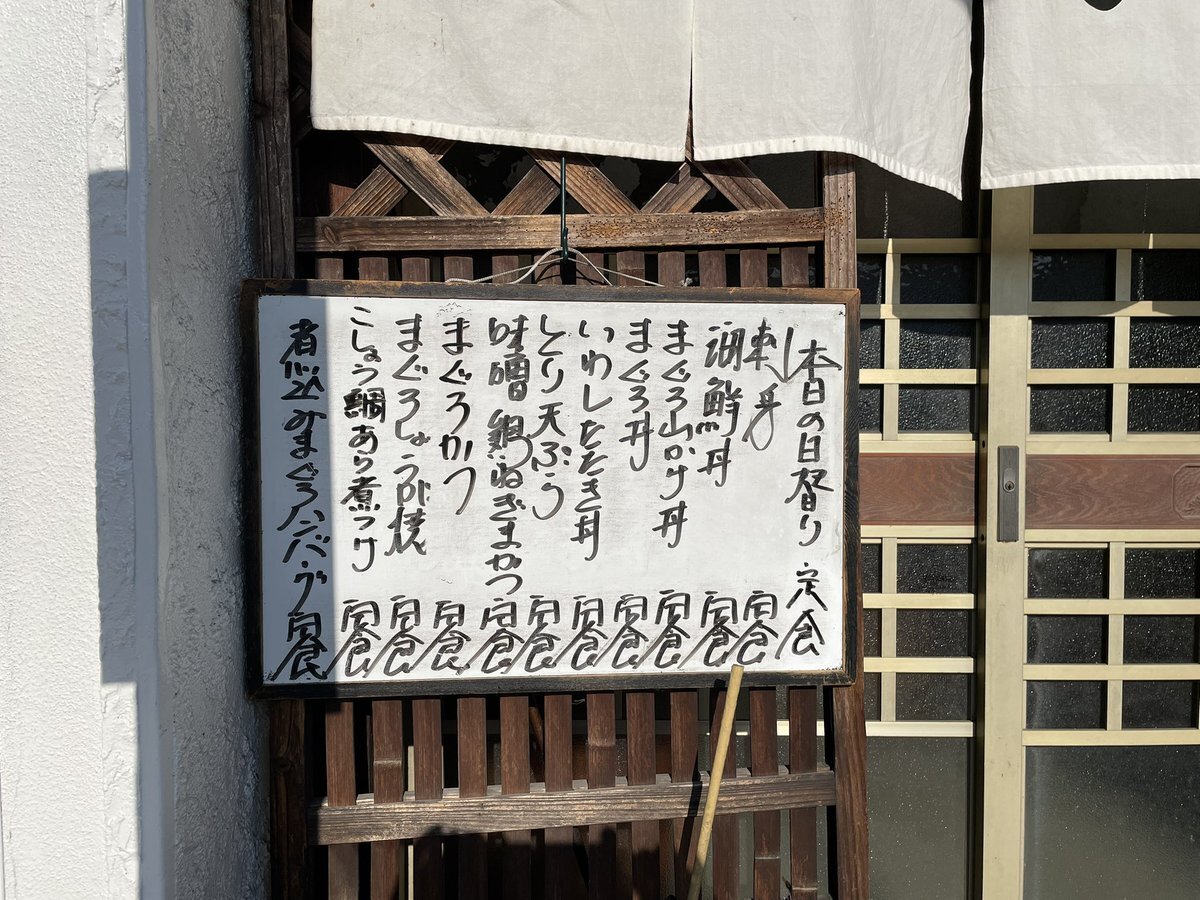 本日の日替り定食
刺身定食
海鮮丼定食
まぐろ山かけ丼定食
まぐろ丼定食
いわしたたき丼定食
とり天ぷら定食
味噌鶏ねぎまかつ定食
まぐろかつ定食
まぐろしょうが焼定食
こしょう鯛あら煮つけ定食
煮込みまぐろハンバーグ定食